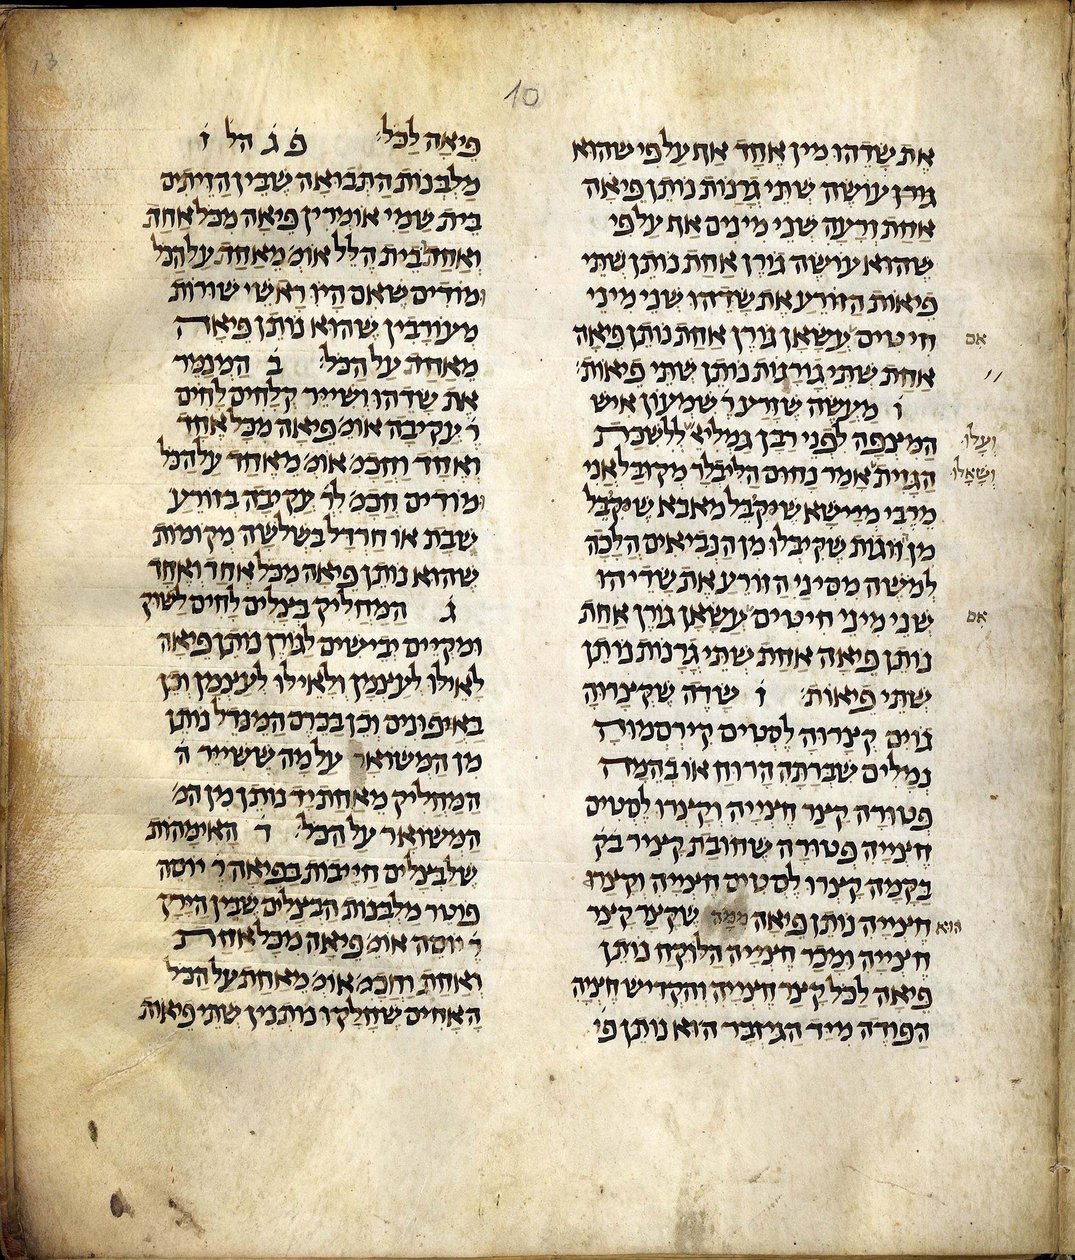 10
13
את שדהו מין אחד אף על פי שהוא
גורן עושה שתי גרנות נותן פיאה
אחת זרעה שני מינים אף על פי
שהוא עושה גורן אחת נותן שתי
פיאות הזורע את שדהו שני מיני
חיטים עשאן גורן אחת נותן פיאה
אם
אחת שתי גורנות נותן שתי פיאות
ו מעשה שזרע ר שמעון איש
המיצפה לפני רבן גמליא ללשכת
ועלו
הגזית אמר נחום הליבלר מקובל אני
ושאלו
מרבי מיישא שקיבל מאבא שקיבל
מן זוגות שקיבלו מן הנביאים הלכה
למשה מסיני הזורע את שדיהו
שני מיני חיטים עשאן גורן אחת
אם
נותן פיאה אחת שתי גרנות נותן
שתי פיאות ז שדה שקצרוה
גוים קיצרוה לסטים קירסמוה
נמלים שברתה הרוח או בהמה
פטורה קצר חצייה וקצרו לסטים
חצייה פטורה שחובת קציר בק
בקמה קצרו לסטים חצייה וקצר
חצייה נותן פיאה ממה שקצר קצר
הוא
חצייה ומכר חצייה הלוקח נותן
פיאה לכל קצר חצייה והקדיש חציה
הפודה מיד הגיזבר הוא נותן פי
פיאה לכל פ ג הל ז
מלבנות התבואה שבין הזיתים
בית שמי אומרין פיאה מכל אחת
ואחת בית הלל אומ מאחת על הכל
ומודים שאם היו ראשי שורות
מעורבין שהוא נותן פיאה
מאחת על הכל ב המנמיר
את שדהו ושייר קלחים לחים
ר עקיבה אומ פיאה מכל אחד
ואחד וחכמ אומ מאחד על הכל
ומודים חכמ לר עקיבה בזורע
שבת או חרדל בשלשה מקומות
שהוא נותן פיאה מכל אחד ואחד
ג המחליק בצלים לחים לשוק
ומקיים יבישים לגורן נותן פיאה
לאילו לעצמן ולאילו לעצמן וכן
באיפונים וכן בכרם המידל נותן
מן המשואר על מה ששייר ה
המחליק מאחת יד נותן מן המ
המשואר על הכל ד האימהות
שלבצלים חייבות בפיאה ר יוסה
פוטר מלבנות הבצלים שבין הירק
ר יוסה אומ פיאה מכל אחת
ואחת וחכמ אומ מאחת על הכל
ה האחים שחלקו נותנין שתי פיאות